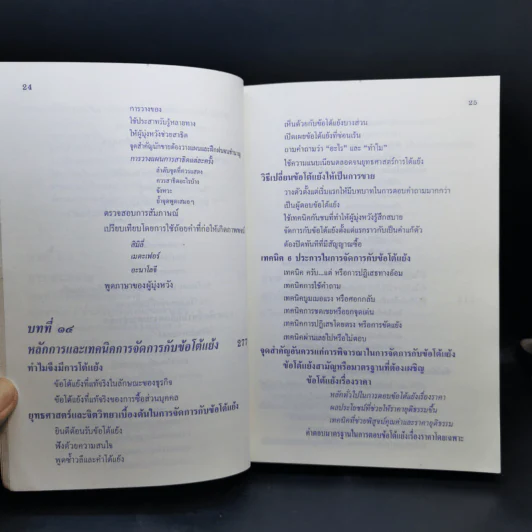 24
การวางของ
ใช้ประสาทรับรู้หลายทาง
ให้ผู้มุ่งหวังช่วยสาธิต
จุดสำคัญนักขายต้องวางแผนและฝึกฝนจนชำนาญ
การวางแผนการสาธิตแต่ละครั้ง
ลำดับจุดที่ควรแสดง
ควรสาธิตอะไรบ้าง
จังหวะ
ย้ำจุดพูดเสมอๆ
ตรวจสอบการสัมภาษณ์
เปรียบเทียบโดยการใช้ถ้อยคำที่ก่อให้เกิดภาพพจน์
สิมิลี่
เมตะเฟอร์
อะนาโลจี
พูดภาษาของผู้มุ่งหวัง
บทที่ ๑๙
หลักการและเทคนิคการจัดการกับข้อโต้แย้ง 277
ทำไมจึงมีการโต้แย้ง
ข้อโต้แย้งที่แท้จริงในลักษณะของธุรกิจ
ข้อโต้แย้งที่แท้จริงของการซื้อส่วนบุคคล
ยุทธศาสตร์และจิตวิทยาเบื้องต้นในการจัดการกับข้อโต้แย้ง
ยินดีต้อนรับข้อโต้แย้ง
ฟังด้วยความสนใจ
พูดซ้ำวลีและคำโต้แย้ง
25
เห็นด้วยกับข้อโต้แย้งบางส่วน
เปิดเผยข้อโต้แย้งที่ซ่อนเร้น
ถามคำถามว่า "อะไร" และ "ทำไม"
ใช้ความแนบเนียนตลอดจนยุทธศาสตร์การโต้แย้ง
วิธีเปลี่ยนข้อโต้แย้งให้เป็นการขาย
วางตัวตั้งแต่เริ่มแรกให้มีบทบาทในการตอบคำถามมากกว่า
เป็นผู้ตอบข้อโต้แย้ง
ใช้เทคนิคกันชนที่ทำให้ผู้มุ่งหวังรู้สึกสบาย
จัดการกับข้อโต้แย้งตั้งแต่แรกราวกับเป็นคำแก้ตัว
ต้องปิดทันทีที่มีสัญญาณซื้อ
เทคนิค ๖ ประการในการจัดการกับข้อโต้แย้ง
เทคนิค ครับ...แต่ หรือการปฏิเสธทางอ้อม
เทคนิคการใช้คำถาม
เทคนิคบูมเมอแรง หรือศอกกลับ
เทคนิคการชดเชยหรือยกจุดเด่น
เทคนิคการปฏิเสธโดยตรง หรือการขัดแย้ง
เทคนิคผ่านเลยไปหรือไม่ตอบ
จุดสำคัญอันควรแก่การพิจารณาในการจัดการกับข้อโต้แย้ง
ข้อโต้แย้งสามัญหรือมาตรฐานที่ต้องเผชิญ
ข้อโต้แย้งเรื่องราคา
หลักทั่วไปในการตอบข้อโต้แย้งเรื่องราคา
ผลประโยชน์ที่ช่วยให้ราคายุติธรรมขึ้น
เทคนิคที่ช่วยพิสูจน์คุณค่าและราคายุติธรรม
คำตอบมาตรฐานในการตอบข้อโต้แย้งเรื่องราคาโดยเฉพาะ